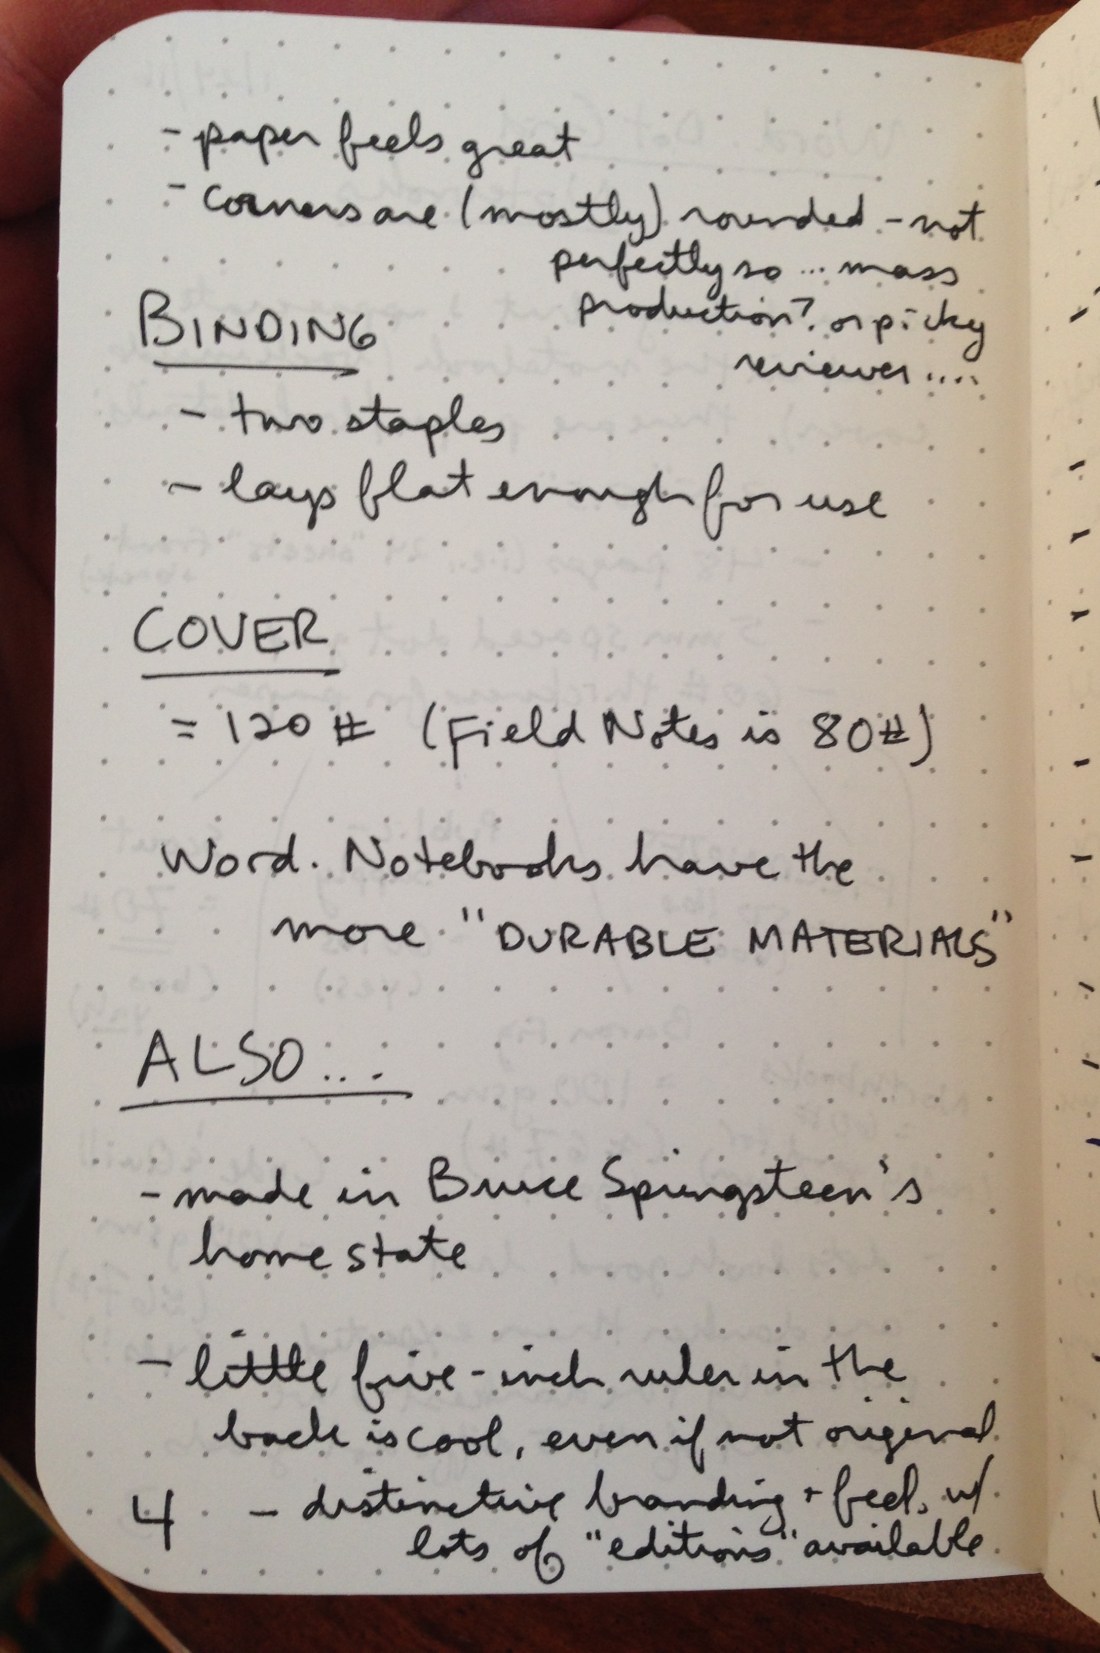 - paper feels great
- corners are (mostly) rounded - not
perfectly so ... mass
production? or picky
reviewer....
BINDING
- two staples
- lays flat enough for use
COVER
= 120 # (Field Notes is 80#)
Word. Notebooks have the
more "DURABLE MATERIALS"
ALSO...
- made in Bruce Springsteen's
home state
- little five-inch ruler in the
back is cool, even if not original
- distinctive branding + feel, w/
lots of "editions" available.
4